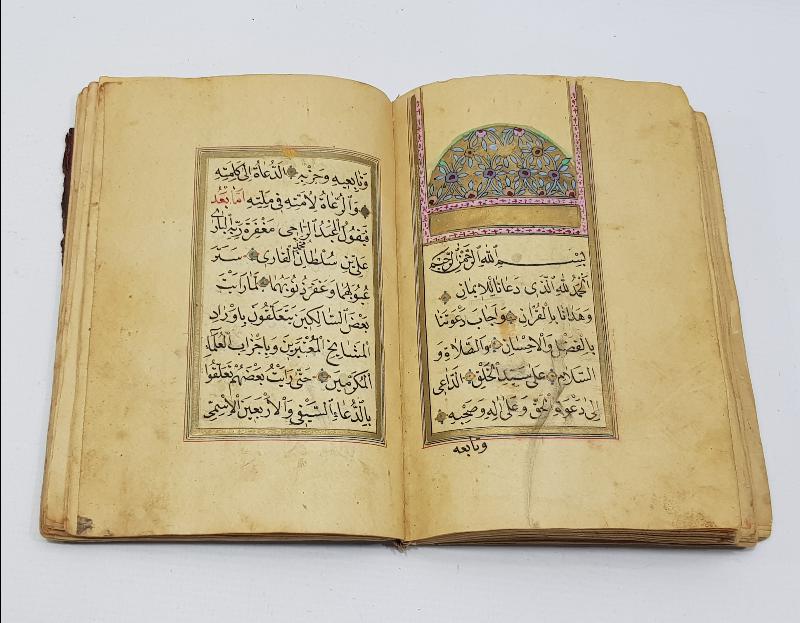 بسم الله الرحمن الرحيم
الحمد لله الذى دعانا للايمان
وهدانا بالقرآن واجاب دعوتنا
بالفضل والاحسان والصلاة و
السلام على سيد الخلق الداعى
الى دعوة الحق وعلى اله وصحبه
وتابعه
وتابعيه وحزبه الدعاة الى كلمته
والرعاة لامته فى ملته اما بعد
فيقول العبد الراجى مغفرة ربه البارى
على بن سلطان محمد القارى ستر
عيوبهما وغفر ذنوبهما لما رايت
بعض السالكين يتعلقون باوراد
المشايخ المعتبرين وباحزاب العلماء
المكرمين حتى رايت بعضهم تعلقوا
بالدعاء السيفى والاربعين الاسمى